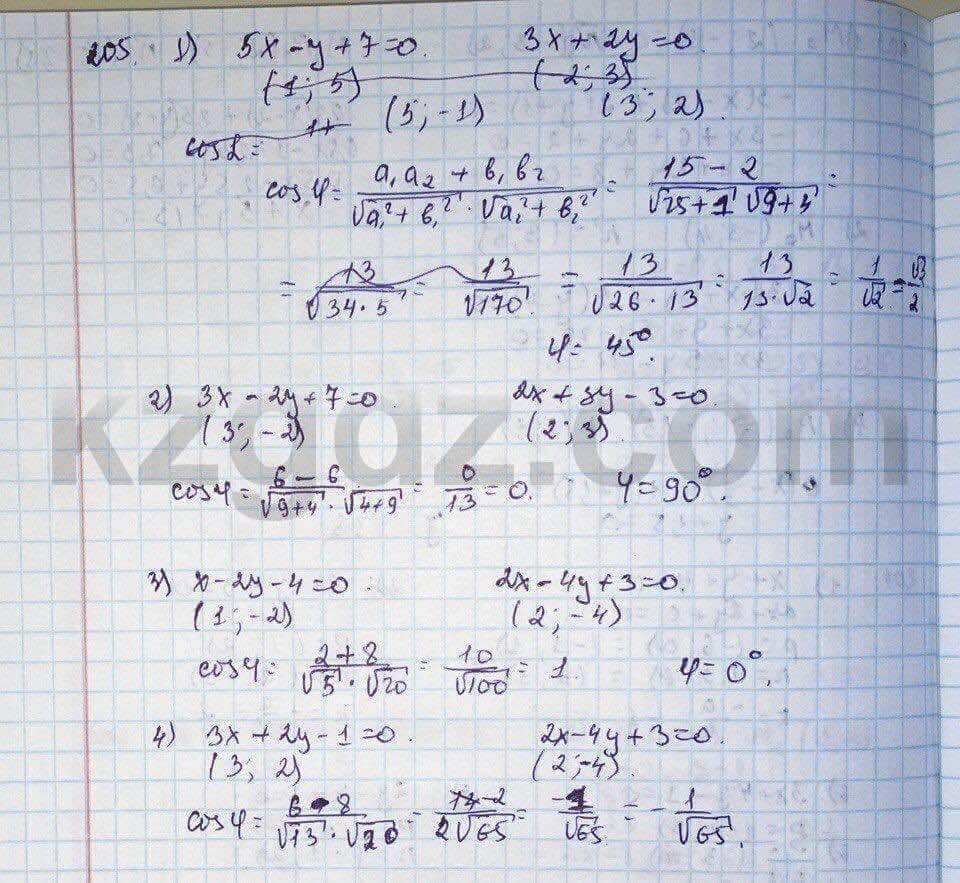 205. 1) 5x - y + 7 = 0. 3x + 2y = 0.
(1; 5) (2; 3)
(5; -1) (3; 2).
cos α = 1+
cos φ = (a₁a₂ + b₁b₂)/(√(a₁² + b₁²) · √(a₂² + b₂²)) = (15 - 2)/(√(25+1) √(9+4)) =
= 13/√(34·5) = 13/√170 = 13/√(26·13) = 13/(13·√2) = 1/√2 = √3/2
φ = 45°.
2) 3x - 2y + 7 = 0. 2x + 3y - 3 = 0.
(3; -2) (2; 3).
kzgdz.com
cos φ = (6 - 6)/(√(9+4) · √(4+9)) = 0/13 = 0. φ = 90°.
3) x - 2y - 4 = 0. 2x - 4y + 3 = 0.
(1; -2) (2; -4)
cos φ = (2 + 8)/(√5 · √20) = 10/√100 = 1 φ = 0°.
4) 3x + 2y - 1 = 0. 2x - 4y + 3 = 0.
(3; 2) (2; -4).
cos φ = (6 - 8)/(√13 · √20) = -2/(2√65) = -1/√65 = -1/√65.